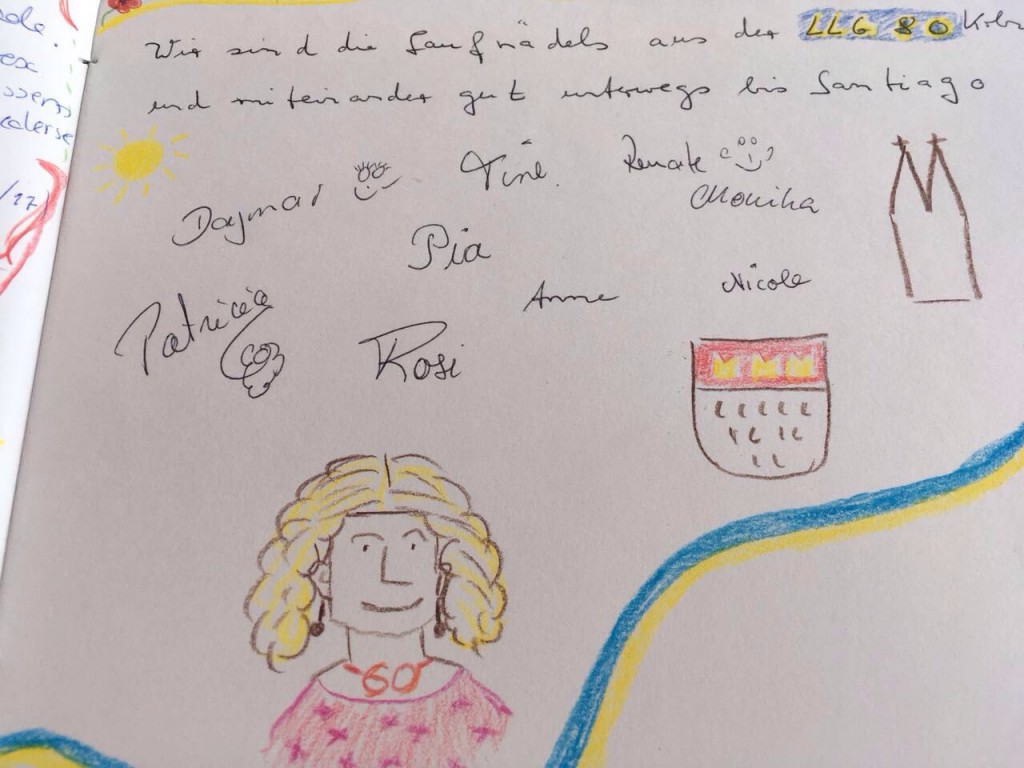 Wir sind die Laufmädels aus der LLG 80 Köln
und miteinander gut unterwegs bis Santiago
Dagmar Tine Renate
Monika
Pia
Anne Nicole
Patricia Rosi
60